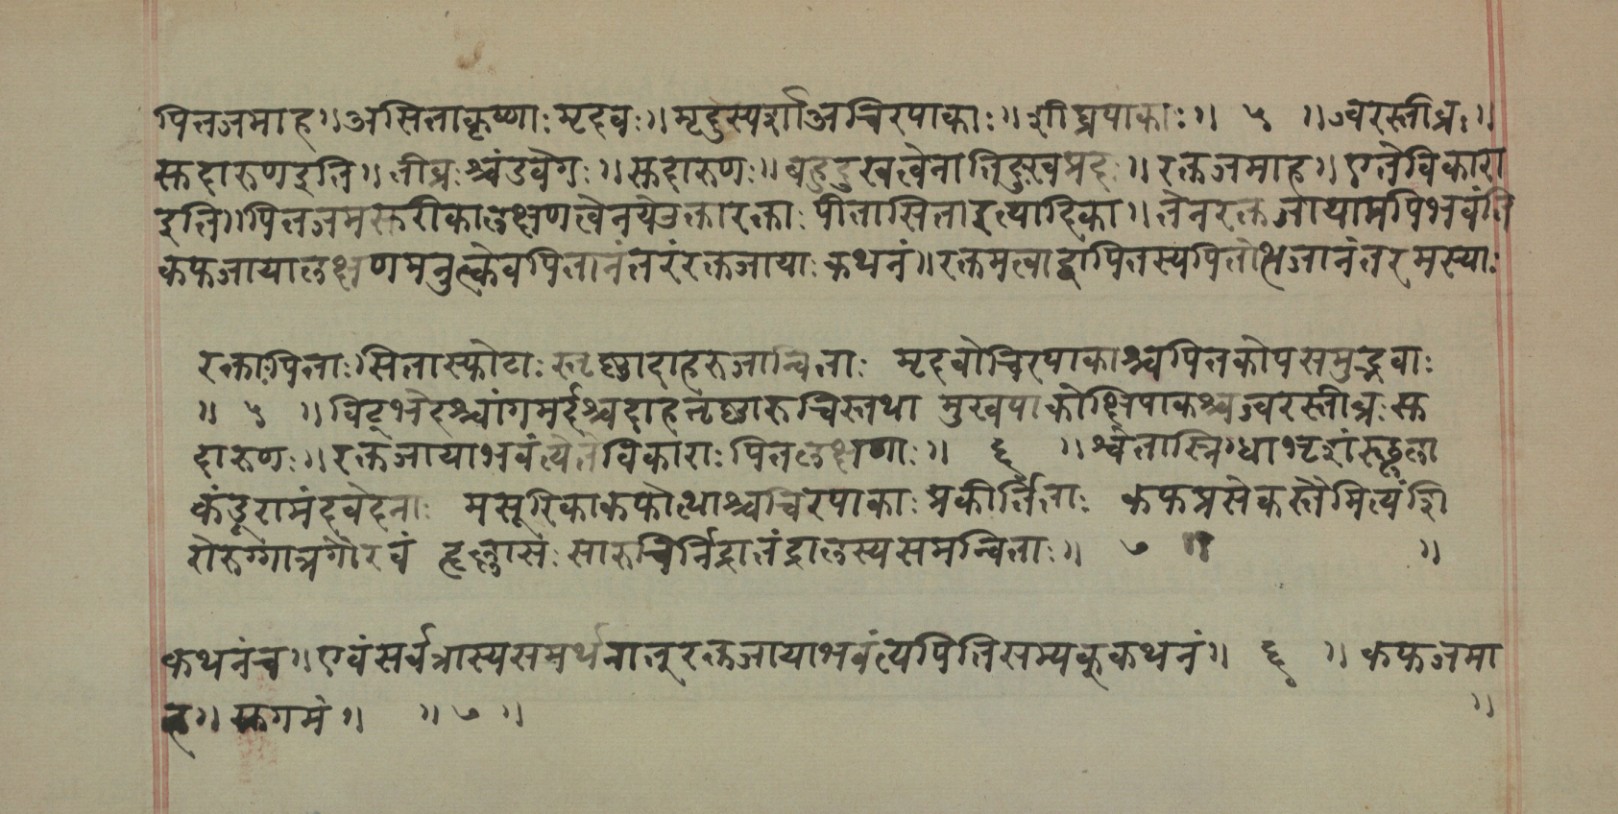 पित्तजमाह ॥ असिताकृष्णाः मृदवः ॥ मृदुस्पर्शाअचिरपाकाः ॥ शीघ्रपाकाः ॥ ५ ॥ ज्वरस्तीव्रः ॥
सुदारुणइति ॥ तीव्रः श्चंडवेगः ॥ सुदारुणः ॥ बहुदुखत्वेनातिदुःखप्रदः ॥ रक्तजमाह ॥ एतेविकारा
इति ॥ पित्तजमसूरीकालक्षणत्वेनयेउक्तारक्ताः पीतासिताइत्यादिका ॥ तेनरक्तजायामपिभवंति
कफजायालक्षणमनुत्क्तेवपित्तानंतरंरक्तजायाः कथनं ॥ रक्तमत्वाद्वापित्तस्यपित्तोत्थजानंतरमस्याः
रक्ताःपिताःसितास्फोटाः स्तृष्णादाहरुजान्विताः मृदवोचिरपाकाश्चपित्तकोपसमुद्भवाः
॥ ५ ॥ विट्भेदश्चांगमर्दश्चदाहतृष्णारुचिस्तथा मुखपाकोक्षिपाकश्चज्वरस्तीव्रःसु
दारुणः ॥ रक्तजायाभवंत्येतेविकाराः पित्तलक्षणाः ॥ ६ ॥ श्वेतास्निग्धाभृशंस्थूला
कंडूरामंदवेदनाः मसूरिकाकफोत्थाश्चचिरपाकाः प्रकीर्तिताः कफप्रसेकस्तैमित्यंशि
रोरुग्गात्रगौरवं हृल्लासः सारुचिर्निद्रातंद्रालस्यसमन्विताः ॥ ७ ॥ ॥
कथनंच ॥ एवंसर्वत्रास्यसमर्थनात्तूरक्तजायाभवंत्यपितिसम्यक्कथनं ॥ ६ ॥ कफजमा
ह ॥ सुगमं ॥ ॥ ७ ॥ ॥